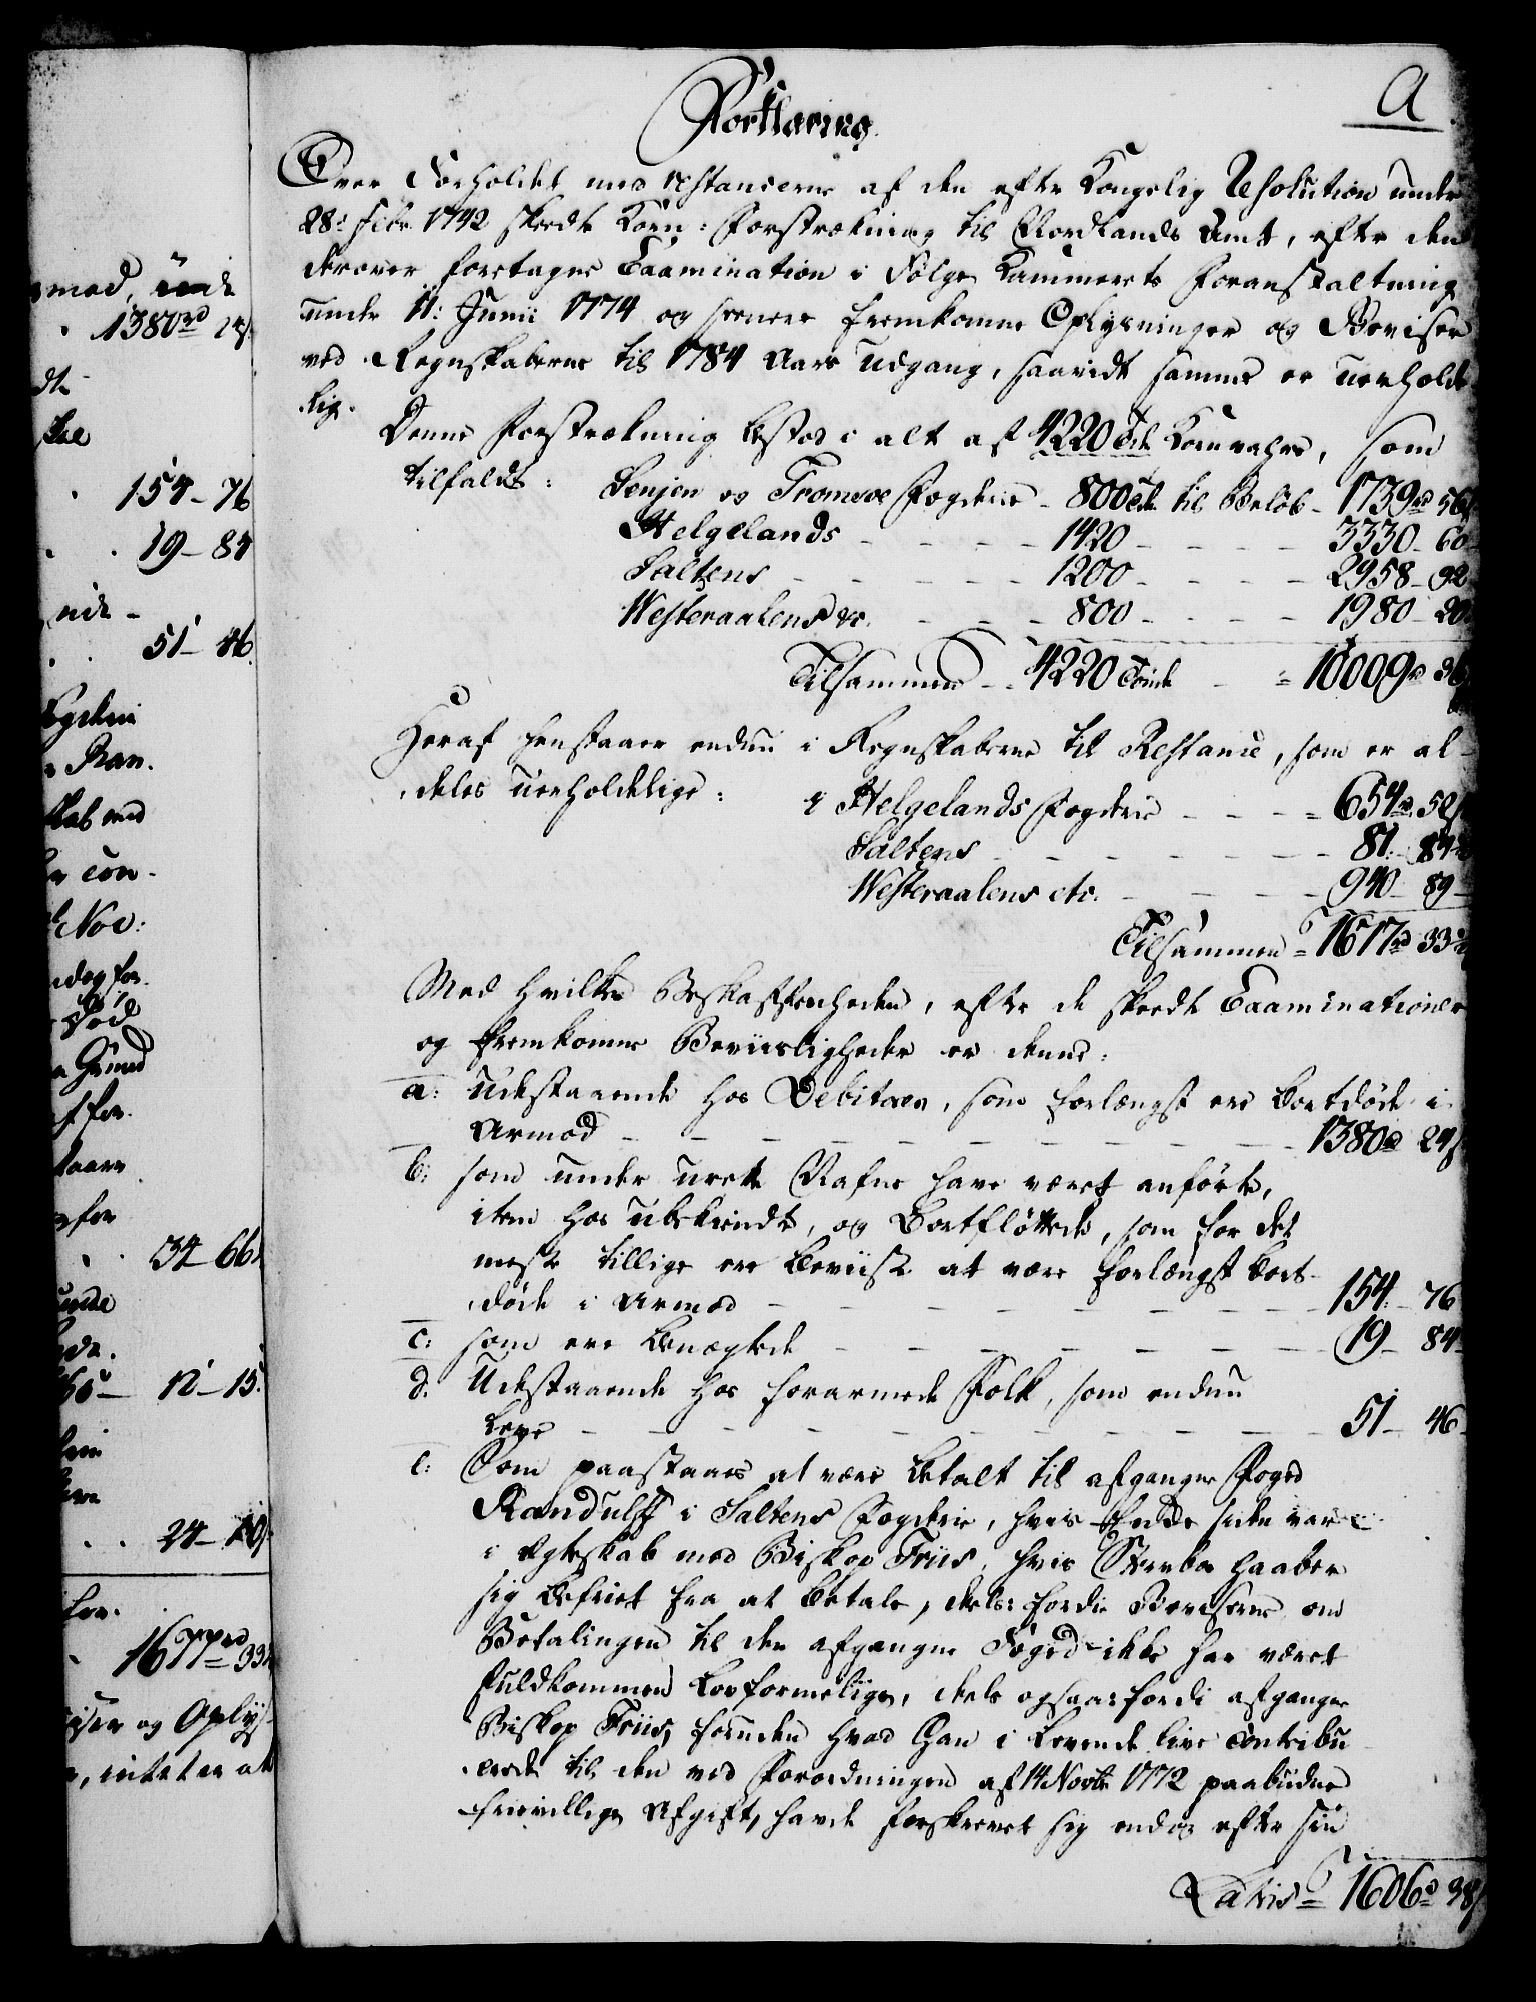 mod, inde
1380 rd 24 s.
154 - 76
19 - 84
51 - 46.
Ran.
skab med
Nov:
død
Grund
34 - 66.
12 - 15.
24 -
1677 rd 33
og Oplys-
, intet er at
A
Forklaring.
Over Forholdet med restancerne af den efter Kongelig Resolution under
28: Febr. 1742 skeedte Korn-Forstrækning til Nordlands Amt, efter den
derover foretagne Examination i Følge Kammerets Foranstaltning
under 11: Junii 1774 og seenere fremkomne Oplysninger og Beviser
ved Regnskaberne til 1784 Aars Udgang, saavidt samme er uerholde-
lig.
Denne Forstrækning bestod i alt af 4220 Tdr Kornvahre, som
tilfaldt: Senjen og Tromsøe Fogderie - 800 Tdr. til Beløb - 1739 rd 56
Helgelands - - - - 1420 - - - - 3330 - 60
Saltens - - - - - 1200 - - - - 2958 - 92
Westeraalens &c. - - - 800 - - - - 1980 - 20
Tilsammen - 4220 Tønde - = 10009 rd 36
Heraf henstaaer endnu i Regnskaberne til Restance, som er al-
deles uerholdelige: i Helgelands Fogderie - - - = 654 rd 52 s
Saltens - - - - - - - 81. 84
Westeraalens etc. - - - - 940 - 89 -
Tilsammen = 1677 rd 33
Med hvilke Beskaffenheden, efter de skeedte Examinationer
og fremkomne Beviisligheder er denne:
a: Udestaaende hos Debitorer, som forlængst ere bortdøde i
Armod - - - - - - - - - - 1380 rd 24 s
b: som under urette Nafne have været anførte,
item hos ubekiendte, og Bortfløttede, som for det
meste tillige ere beviiste at være forlængst bort-
døde i Armod - - - - - - - - 154 - 76
c: som ere benægtede - - - - - - - 19 - 84 -
d. Udestaaende hos forarmede Folk, som endnu
leve - - - - - - - - - - 51 - 46 -
e: Som paastaaes at være betalt til afgangne Foged
Randulff i Saltens Fogderie, hvis Enke siden var
i Egteskab med Biskop Friis, hvis Sterboe haaber
sig befriet fra at betale, deels fordi Beviserne om
Betalingen til den afgangne Foged ikke har været
fuldkommen lovformelige, deels ogsaa fordi afgangne
Biskop Friis, foruden hvad Han i levende live contribu-
erede til den ved Forordningen af 14 Novbr 1772 paabudne
frievillige Afgift, havde forskrevet sig endog efter sin
Latus = 1606 rd 38 s